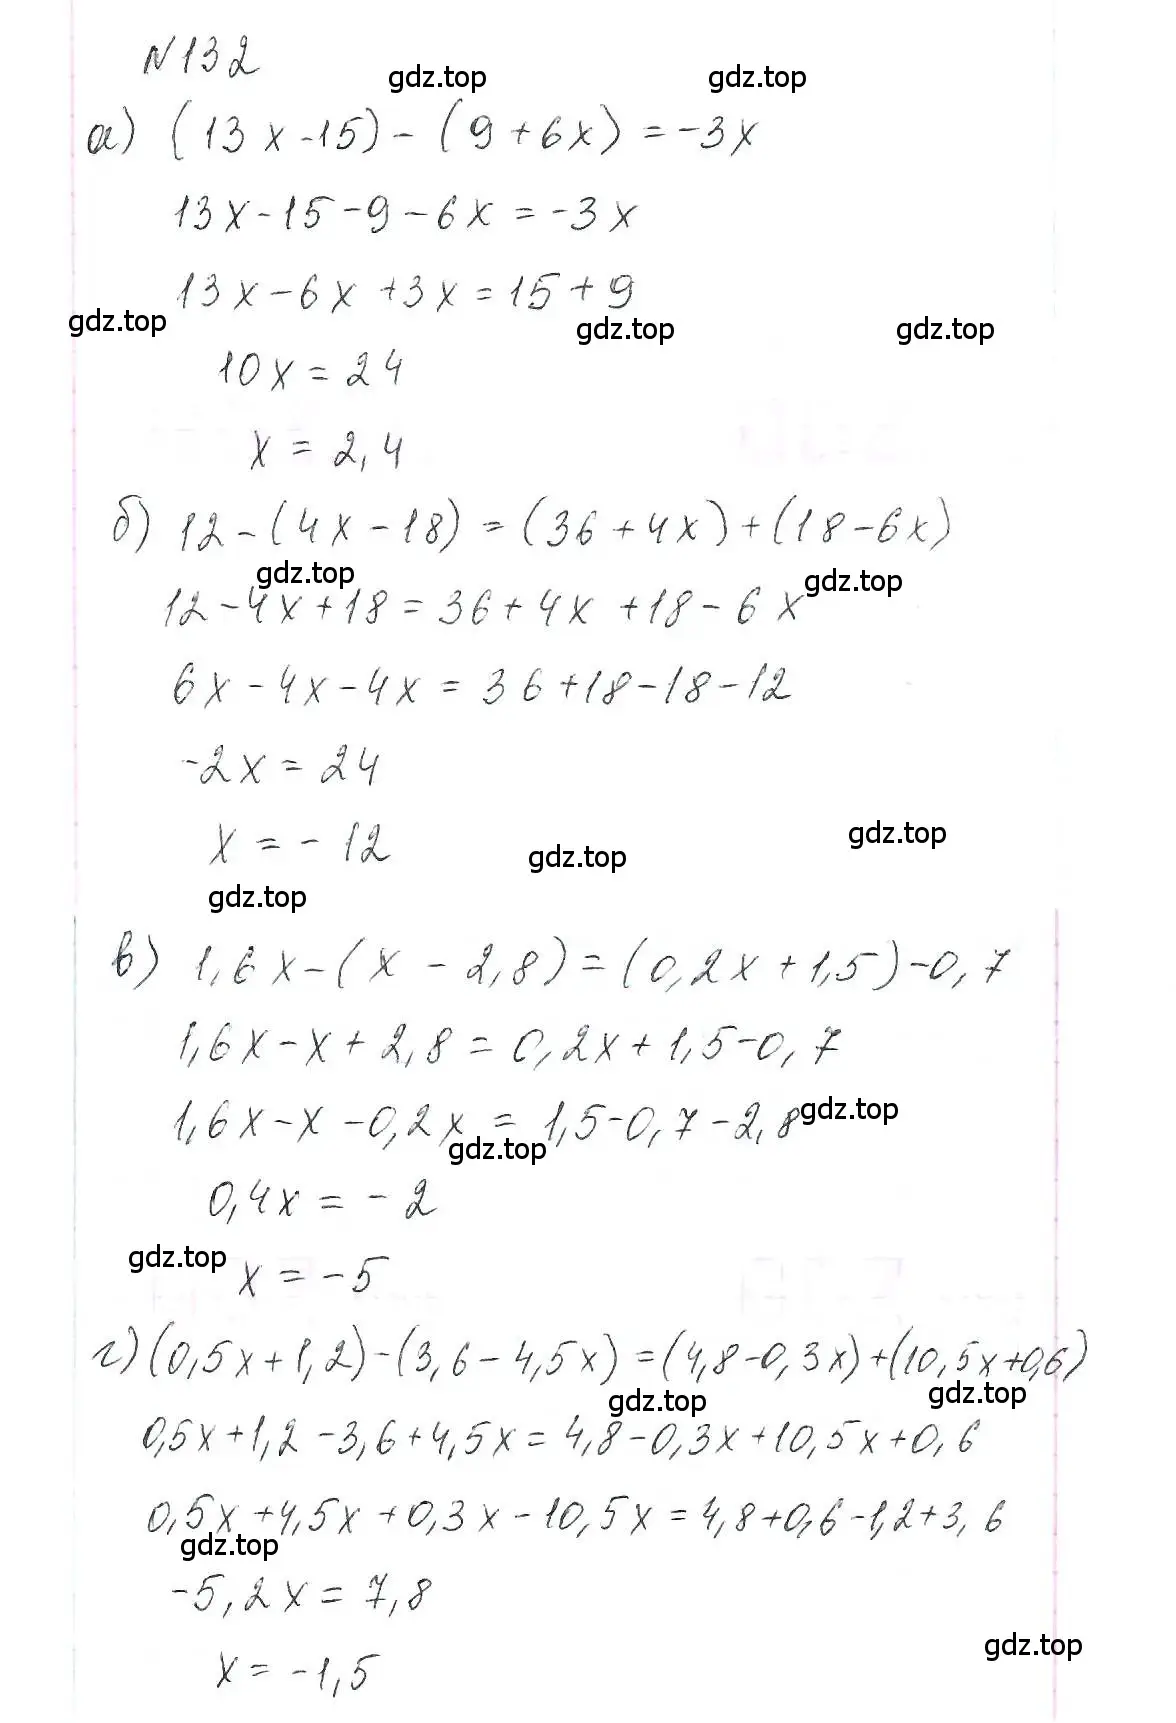 N 132
gdz.top gdz.top
а) (13x-15)-(9+6x)=-3x
13x-15-9-6x=-3x
13x-6x+3x=15+9
gdz.top gdz.top gdz.top
10x=24
x=2,4
б) 12-(4x-18)=(36+4x)+(18-6x)
gdz.top gdz.top
12-4x+18=36+4x+18-6x
6x-4x-4x=36+18-18-12
-2x=24
x=-12
gdz.top gdz.top gdz.top
в) 1,6x-(x-2,8)=(0,2x+1,5)-0,7
1,6x-x+2,8=0,2x+1,5-0,7
1,6x-x-0,2x=1,5-0,7-2,8
gdz.top gdz.top
0,4x=-2
gdz.top
x=-5
г) (0,5x+1,2)-(3,6-4,5x)=(4,8-0,3x)+(10,5x+0,6)
gdz.top gdz.top
0,5x+1,2-3,6+4,5x=4,8-0,3x+10,5x+0,6
0,5x+4,5x+0,3x-10,5x=4,8+0,6-1,2+3,6
gdz.top
-5,2x=7,8
x=-1,5
gdz.top